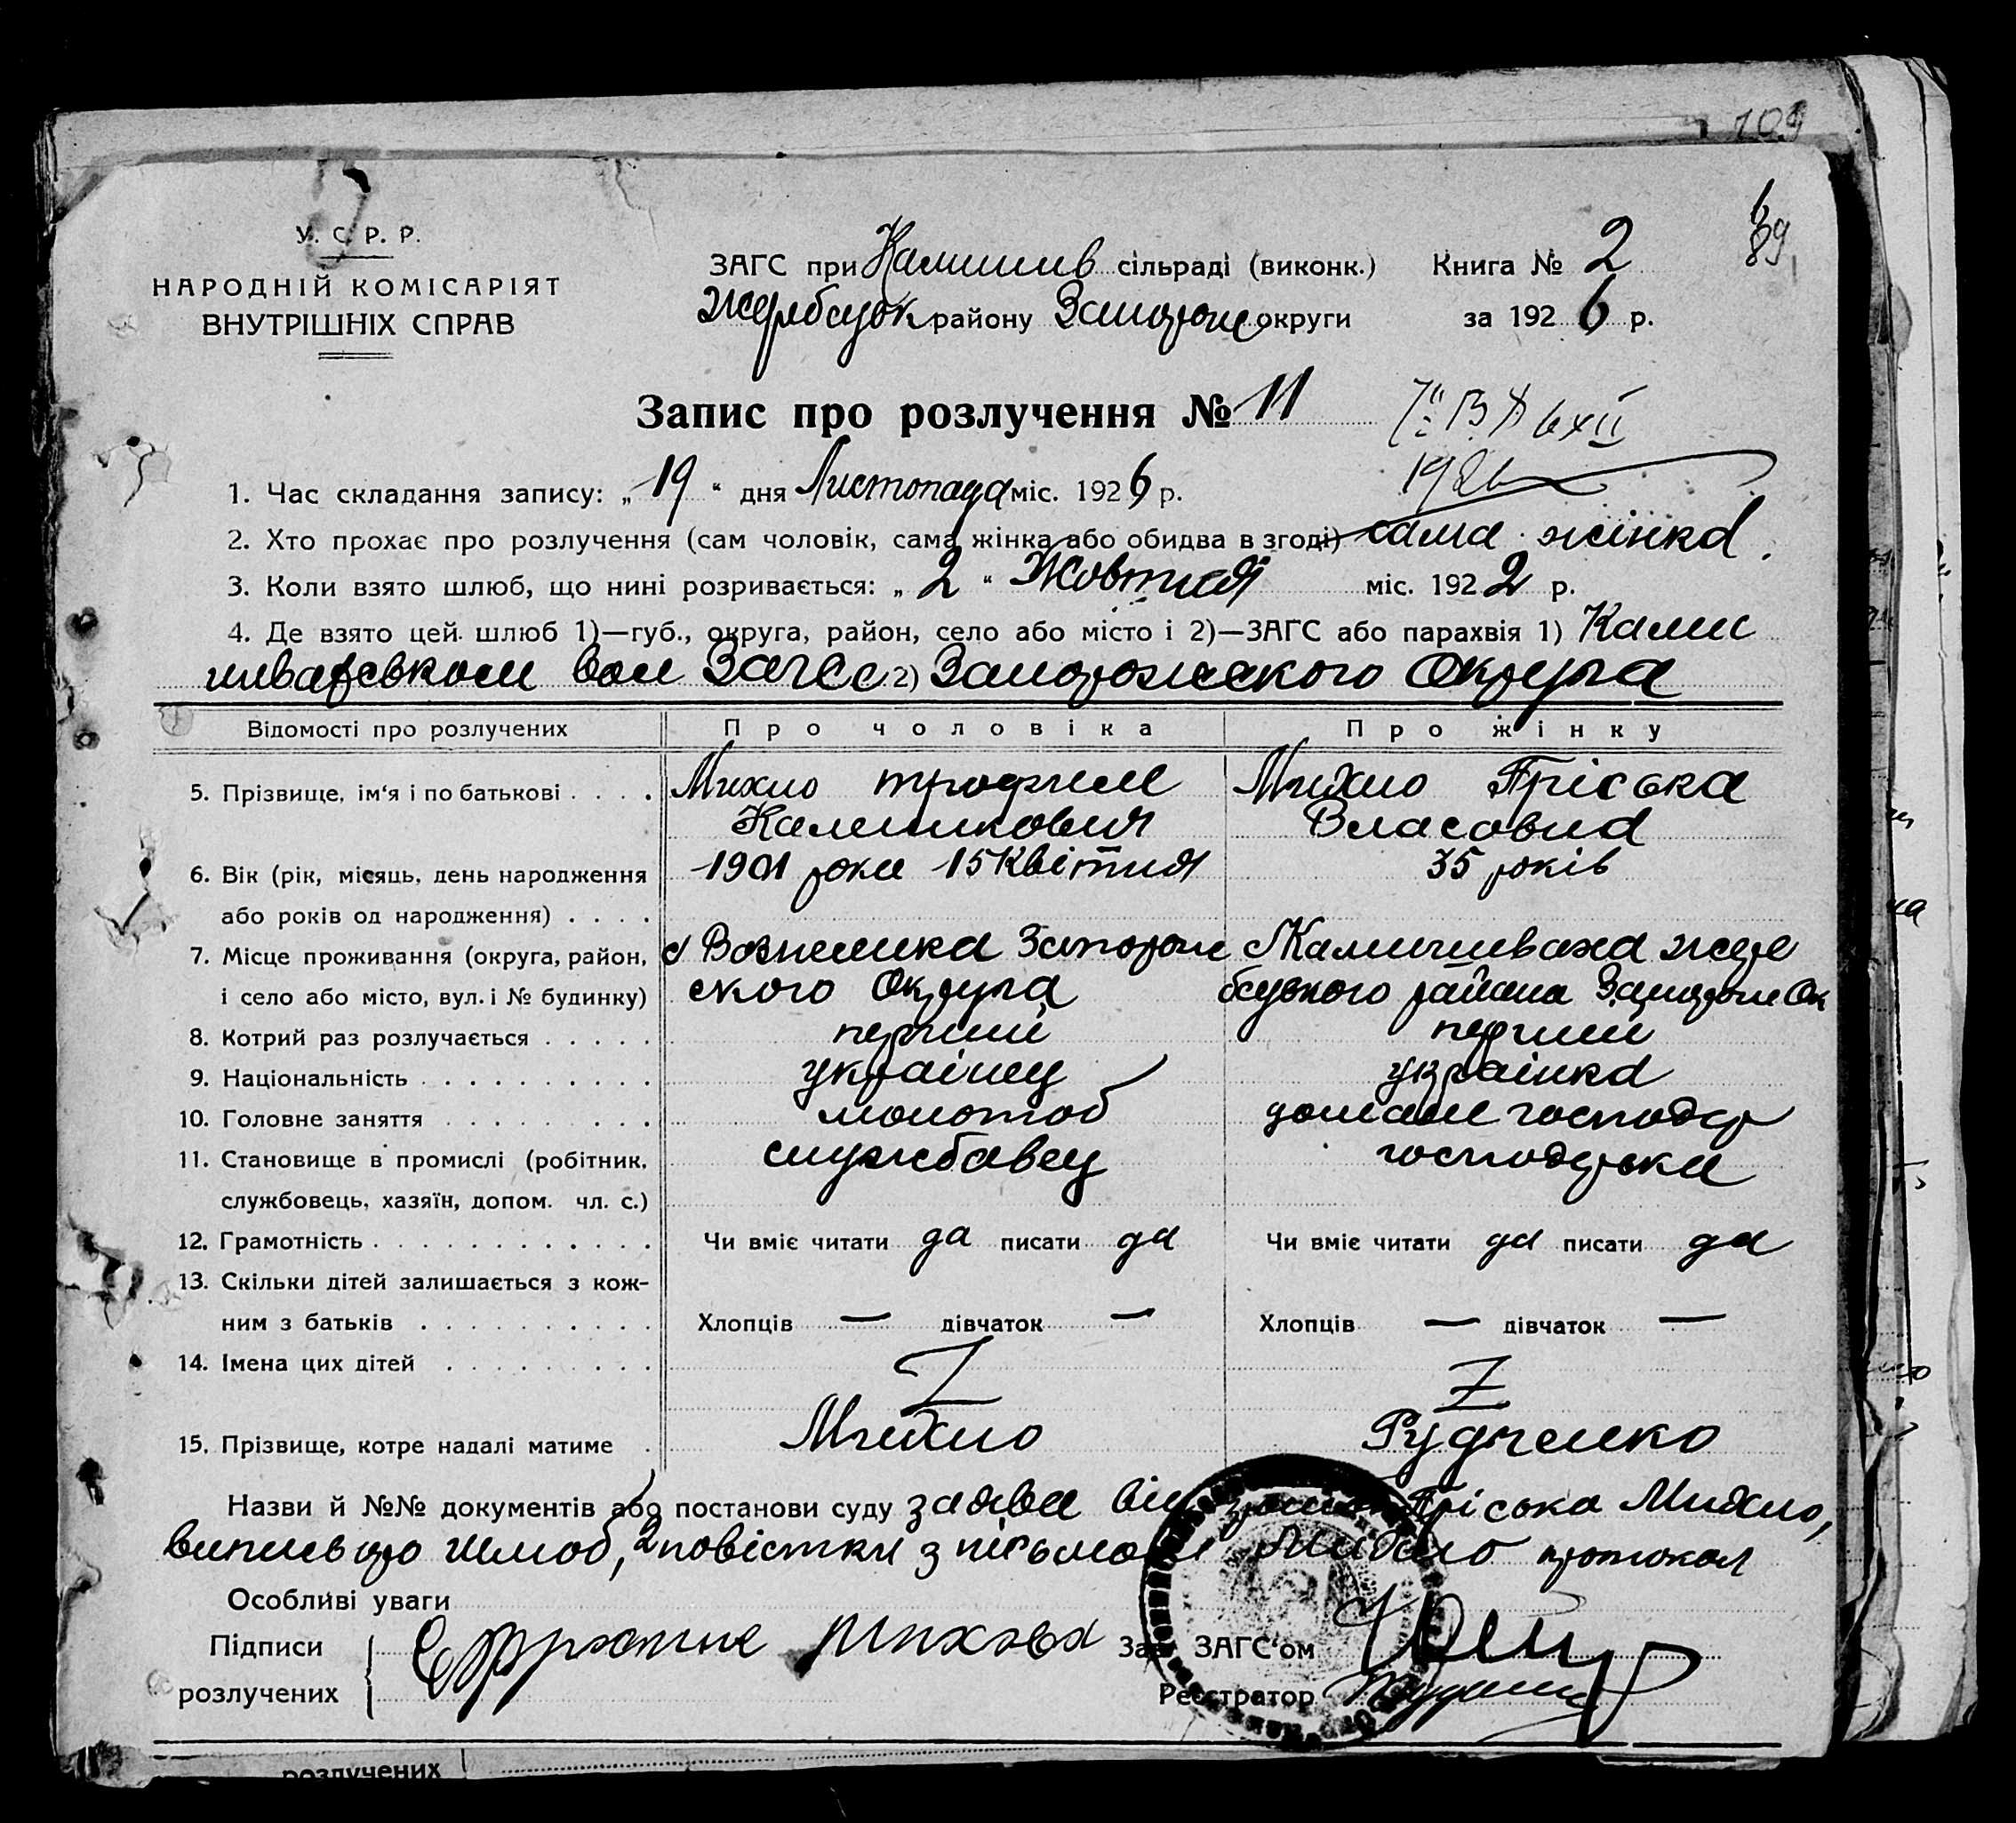 109
89
У. С. Р. Р.
НАРОДНІЙ КОМІСАРІЯТ
ВНУТРІШНІХ СПРАВ
ЗАГС при Камишив сільраді (виконк.) Книга № 2
Жеребецьк району Запорож округи за 1926 р.
Запис про розлучення № 11
1926
1. Час складання запису: „19“ дня Листопада міс. 1926 р.
2. Хто прохає про розлучення (сам чоловік, сама жінка або обидва в згоді) сама жінка.
3. Коли взято шлюб, що нині розривається: „2“ Жовтня міс. 1922 р.
4. Де взято цей шлюб 1)—губ., округа, район, село або місто і 2)—ЗАГС або парахвія 1)Ками
шеваському вол Загсе 2) Запорожського Округа
Відомості про розлучених Про чоловіка Про жінку
5. Прізвище, ім‘я і по батькові . . . . Михно Трофим Михно Пріська
Каленикович Власовна
6. Вік (рік, місяць, день народження 1901 року 15 Квітня 35 років
або років од народження) . . . .
7. Місце проживання (округа, район, с Вознесенка Запорож с Камишеваха жере
і село або місто, вул. і № будинку) ского Округа бецького района Запорож Ок
8. Котрий раз розлучається . . . . . перший перший
9. Національність . . . . . . . . . . українец українка
10. Головне заняття . . . . . . . . . молотоб домашнє господар
11. Становище в промислі (робітник, службавец господарька
службовець, хазяїн, допом. чл. с.)
12. Грамотність . . . . . . . . . . . . Чи вміє читати да писати да Чи вміє читати да писати да
13. Скільки дітей залишається з кож-
ним з батьків . . . . . . . . . . Хлопців — дівчаток — Хлопців — дівчаток —
14. Імена цих дітей . . . . . . . . . Z Z
15. Прізвище, котре надалі матиме . Михно Рудченко
Назви й №№ документів або постанови суду заява від Пріська Михно,
випись про шлюб, 2 повістки з пісьмом Михно протокол
Особливі уваги
Підписи Зав. ЗАГС‘ом
розлучених Реєстратор
розлучених